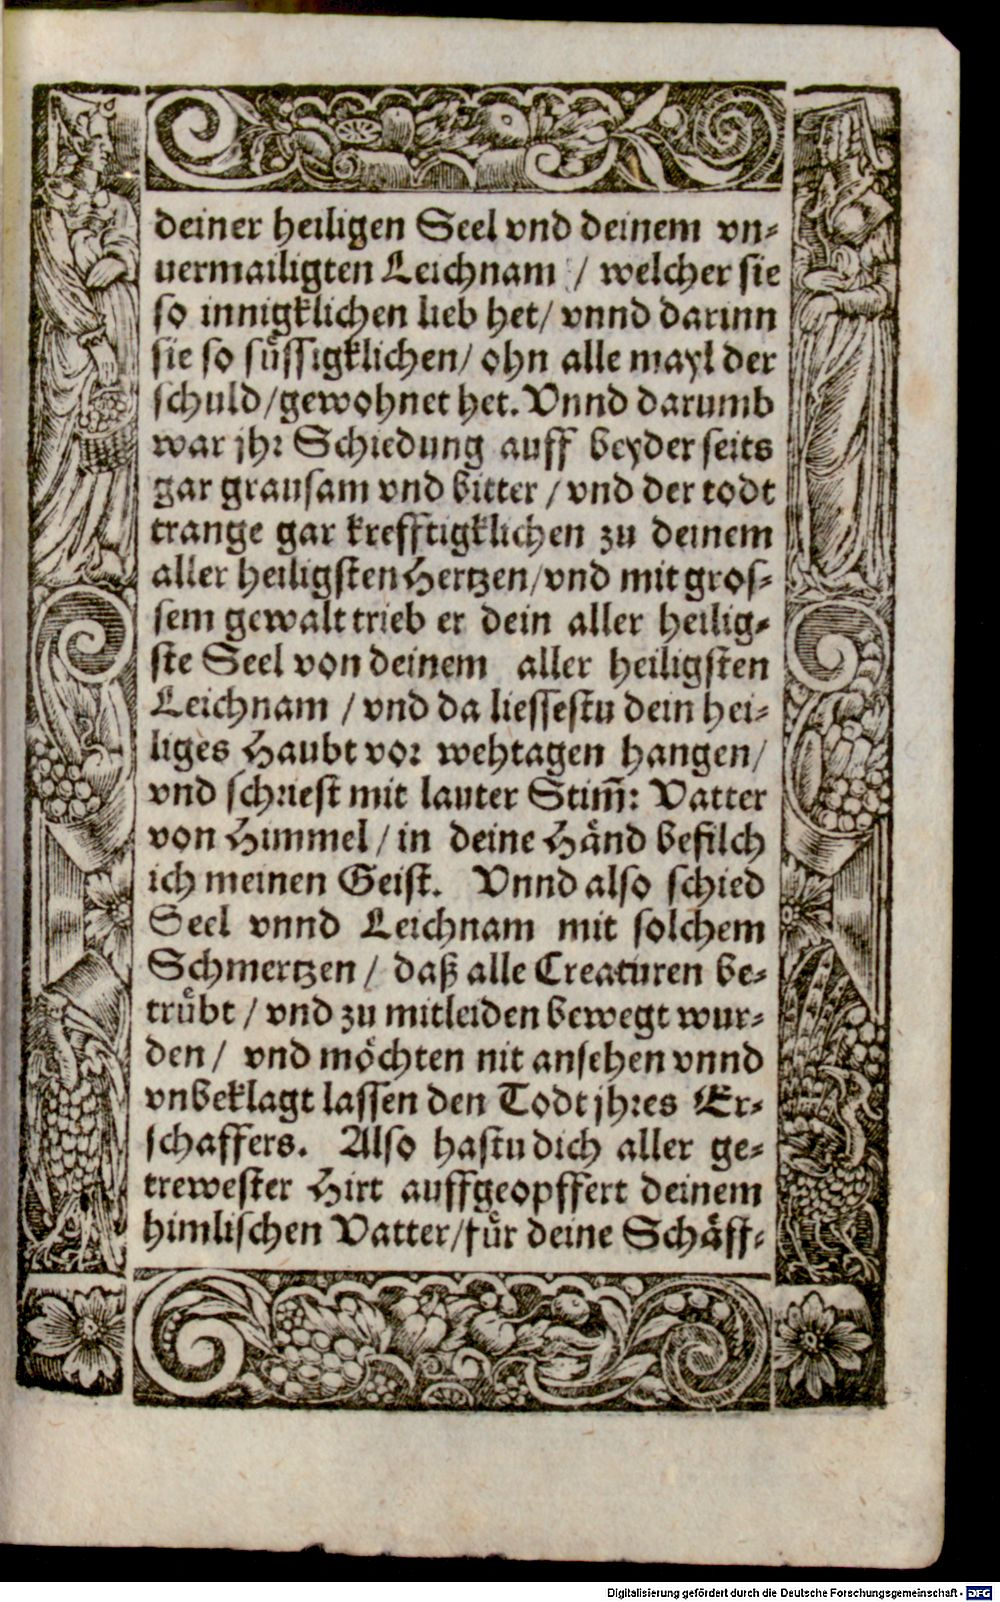 deiner heiligen Seel vnd deinem vn⸗
uermailigten Leichnam / welcher sie
so innigklichen lieb het/ vnnd darinn
sie so süssigklichen/ ohn alle mayl der
schuld/gewohnet het. Vnnd darumb
war jhr Schiedung auff beyder seits
gar grausam vnd bitter / vnd der todt
trange gar krefftigklichen zu deinem
aller heiligsten Hertzen/vnd mit gros⸗
sem gewalt trieb er dein aller heilig⸗
ste Seel von deinem aller heiligsten
Leichnam / vnd da liessestu dein hei⸗
liges Haubt vor wehtagen hangen/
vnd schriest mit lauter Stim̃: Vatter
von Himmel / in deine Händ befilch
ich meinen Geist. Vnnd also schied
Seel vnnd Leichnam mit solchem
Schmertzen / daß alle Creaturen be⸗
trübt / vnd zu mitleiden bewegt wur⸗
den / vnd möchten nit ansehen vnnd
vnbeklagt lassen den Todt jhres Er⸗
schaffers. Also hastu dich aller ge⸗
trewester Hirt auffgeopffert deinem
himlischen Vatter/für deine Schäff⸗
Digitalisierung gefördert durch die Deutsche Forschungsgemeinschaft - DFG